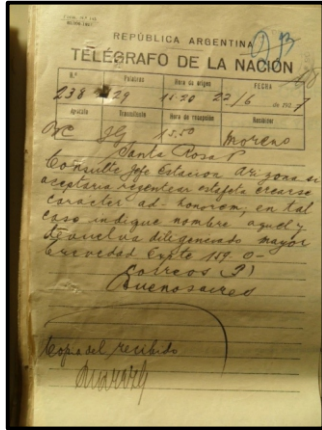 REPÚBLICA ARGENTINA
TELÉGRAFO DE LA NACIÓN
N.º Palabras Hora de origen FECHA
238 29 11.20 22/6 de 192
Aparato Transmitente Hora de recepción Receptor
JG 15.50 Moreno
Santa Rosa P
Consulte jefe Estacion Arizona si
aceptaria regentear estafeta crearse
caracter ad honorem; en tal
caso indique nombre aquel y
devuelva diligenciado mayor
brevedad Expte 189. O-
Correos
Buenosaires
Copia del recibido